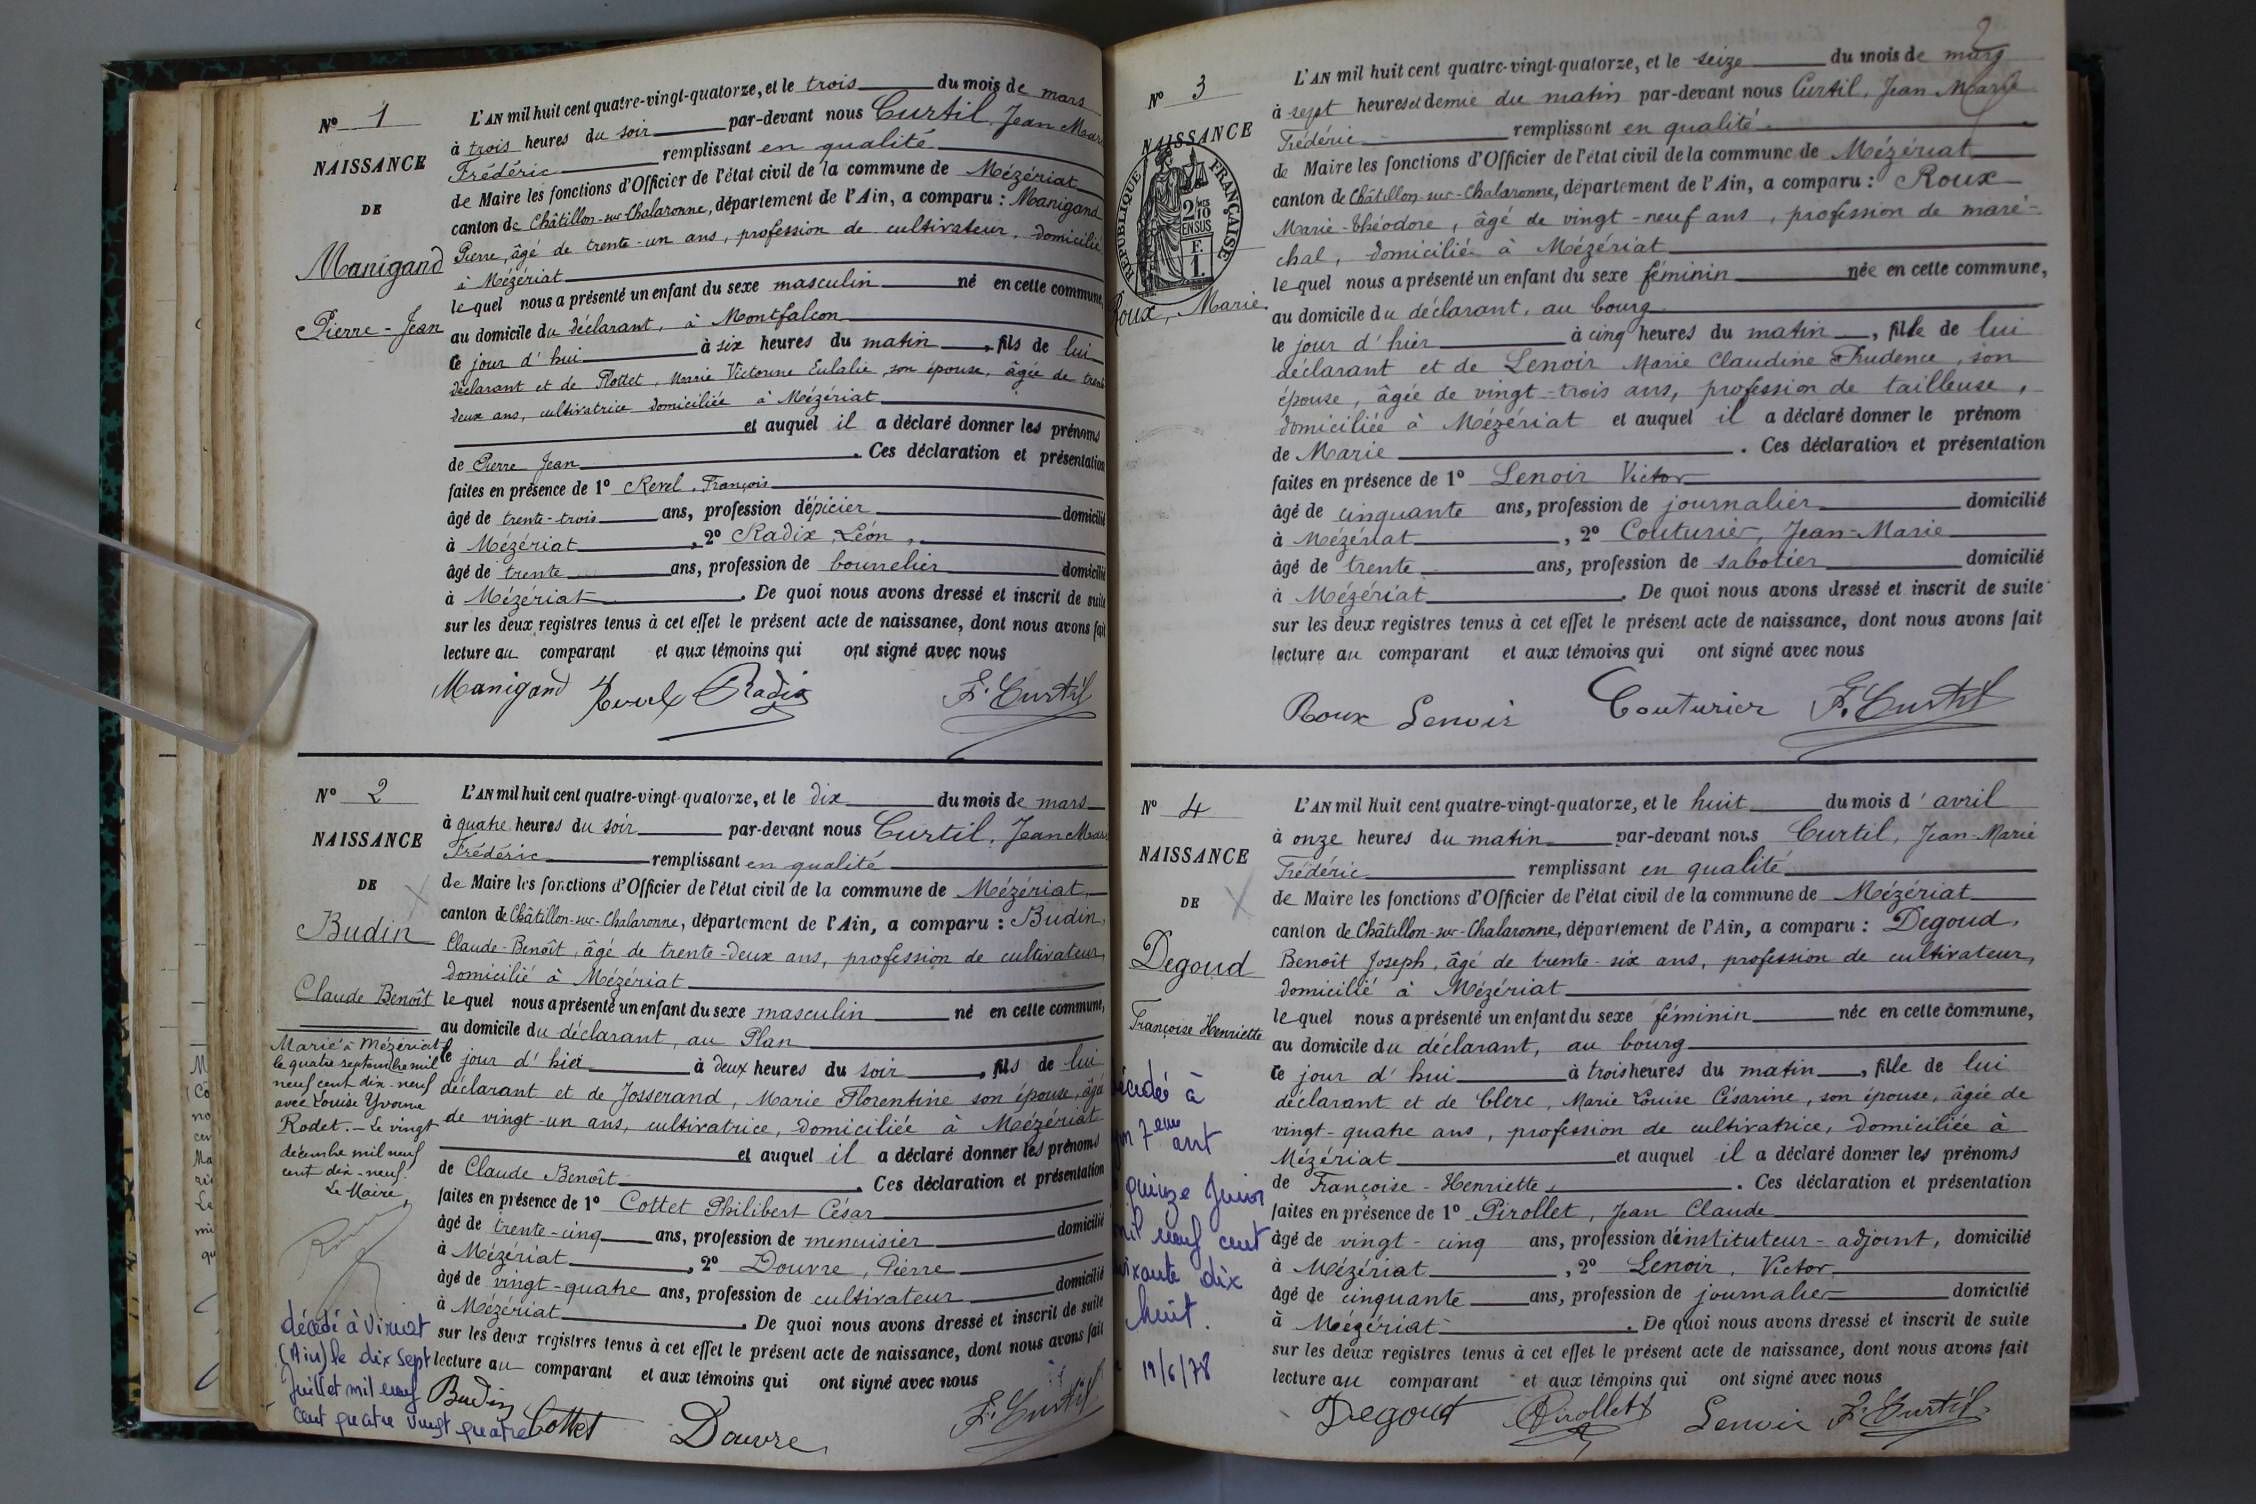 Nº 1
NAISSANCE
DE
Manigand
Pierre-Jean
L'AN mil huit cent quatre-vingt-quatorze, et le trois du mois de mars
à trois heures du soir par-devant nous Curtil, Jean Marie
Frédéric remplissant en qualité
de Maire les fonctions d'Officier de l'état civil de la commune de Mézériat
canton de Châtillon-sur-Chalaronne, département de l'Ain, a comparu : Manigand
Pierre, âgé de trente-un ans, profession de cultivateur, domicilié
à Mézériat
lequel nous a présenté un enfant du sexe masculin né en cette commune,
au domicile du déclarant, à Montfalcon
ce jour d'hui à six heures du matin, fils de lui
déclarant et de Flottet, Marie Victorine Eulalie, son épouse, âgée de trente
deux ans, cultivatrice domiciliée à Mézériat
et auquel il a déclaré donner les prénoms
de Pierre Jean. Ces déclaration et présentation
faites en présence de 1º Revel, François
âgé de trente-trois ans, profession d'épicier domicilié
à Mézériat, 2º Radix, Léon,
âgé de trente ans, profession de bourrelier domicilié
à Mézériat. De quoi nous avons dressé et inscrit de suite
sur les deux registres tenus à cet effet le présent acte de naissance, dont nous avons fait
lecture au comparant et aux témoins qui ont signé avec nous
Manigand Revel Radix F. Curtil
Nº 2
NAISSANCE
DE
Budin
Claude Benoît
Marié à Mézériat
le quatre septembre mil
neuf cent dix-neuf
avec Louise Yvonne
Rodet. - Le vingt
décembre mil neuf
cent dix-neuf.
Le Maire,
décédé à Viriat
(Ain) le dix sept
Juillet mil neuf
cent quatre vingt quatre
L'AN mil huit cent quatre-vingt-quatorze, et le dix du mois de mars
à quatre heures du soir par-devant nous Curtil, Jean Marie
Frédéric remplissant en qualité
de Maire les fonctions d'Officier de l'état civil de la commune de Mézériat
canton de Châtillon-sur-Chalaronne, département de l'Ain, a comparu : Budin,
Claude-Benoît, âgé de trente-deux ans, profession de cultivateur,
domicilié à Mézériat
lequel nous a présenté un enfant du sexe masculin né en cette commune,
au domicile du déclarant, au Plan
le jour d'hier à deux heures du soir, fils de lui
déclarant et de Josserand, Marie Florentine son épouse, âgée
de vingt-un ans, cultivatrice, domiciliée à Mézériat
et auquel il a déclaré donner les prénoms
de Claude Benoît. Ces déclaration et présentation
faites en présence de 1º Cottet Philibert César
âgé de trente-cinq ans, profession de menuisier domicilié
à Mézériat, 2º Douvre, Pierre
âgé de vingt-quatre ans, profession de cultivateur domicilié
à Mézériat. De quoi nous avons dressé et inscrit de suite
sur les deux registres tenus à cet effet le présent acte de naissance, dont nous avons fait
lecture au comparant et aux témoins qui ont signé avec nous
Budin Cottet Douvre F. Curtil
2
Nº 3
NAISSANCE
RÉPUBLIQUE FRANÇAISE
2/10
EN SUS
F.
1.
Roux, Marie
L'AN mil huit cent quatre-vingt-quatorze, et le seize du mois de mars
à sept heures et demie du matin par-devant nous Curtil, Jean Marie
Frédéric remplissant en qualité
de Maire les fonctions d'Officier de l'état civil de la commune de Mézériat
canton de Châtillon-sur-Chalaronne, département de l'Ain, a comparu : Roux
Marie-Théodore, âgé de vingt-neuf ans, profession de maré-
chal, domicilié à Mézériat
lequel nous a présenté un enfant du sexe féminin née en cette commune,
au domicile du déclarant, au bourg
le jour d'hier à cinq heures du matin, fille de lui
déclarant et de Lenoir Marie Claudine Prudence, son
épouse, âgée de vingt-trois ans, profession de tailleuse,
domiciliée à Mézériat et auquel il a déclaré donner le prénom
de Marie. Ces déclaration et présentation
faites en présence de 1º Lenoir Victor
âgé de cinquante ans, profession de journalier domicilié
à Mézériat, 2º Couturier, Jean-Marie
âgé de trente ans, profession de sabotier domicilié
à Mézériat. De quoi nous avons dressé et inscrit de suite
sur les deux registres tenus à cet effet le présent acte de naissance, dont nous avons fait
lecture au comparant et aux témoins qui ont signé avec nous
Roux Lenoir Couturier F. Curtil
Nº 4
NAISSANCE
DE
Degoud
Françoise Henriette
écédée à
7eme ant
quinze Juin
mil neuf cent
ixante dix
huit.
19/6/78
L'AN mil huit cent quatre-vingt-quatorze, et le huit du mois d'avril
à onze heures du matin par-devant nous Curtil, Jean-Marie
Frédéric remplissant en qualité
de Maire les fonctions d'Officier de l'état civil de la commune de Mézériat
canton de Châtillon-sur-Chalaronne, département de l'Ain, a comparu : Degoud,
Benoît Joseph, âgé de trente-six ans, profession de cultivateur,
domicilié à Mézériat
lequel nous a présenté un enfant du sexe féminin née en cette commune,
au domicile du déclarant, au bourg
ce jour d'hui à trois heures du matin, fille de lui
déclarant et de Clerc, Marie Louise Césarine, son épouse, âgée de
vingt-quatre ans, profession de cultivatrice, domiciliée à
Mézériat et auquel il a déclaré donner les prénoms
de Françoise-Henriette. Ces déclaration et présentation
faites en présence de 1º Pirollet, Jean Claude
âgé de vingt-cinq ans, profession d'instituteur-adjoint, domicilié
à Mézériat, 2º Lenoir, Victor
âgé de cinquante ans, profession de journalier domicilié
à Mézériat. De quoi nous avons dressé et inscrit de suite
sur les deux registres tenus à cet effet le présent acte de naissance, dont nous avons fait
lecture au comparant et aux témoins qui ont signé avec nous
Degoud Pirollet Lenoir F. Curtil